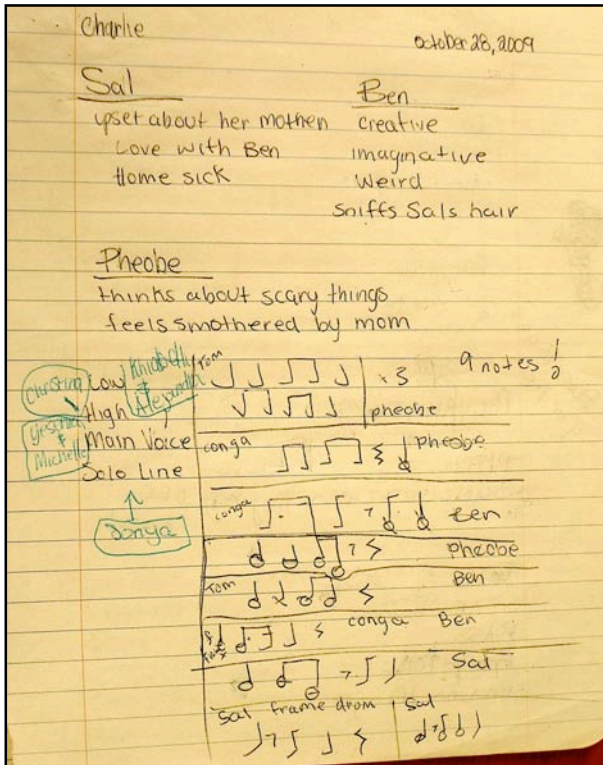 Charlie
october 28, 2009
Sal
upset about her mother
Love with Ben
Home sick
Ben
creative
imaginative
weird
sniffs Sals hair
Pheobe
thinks about scary things
feels smothered by mom
Christina
Low
High
Main Voice
Solo Line
&
Alexandra
&
Michelle
Sonya
Tom
x3
9 notes
pheobe
conga
Pheobe
conga
Ben
Pheobe
Tom
Ben
conga
Ben
Sal
Sal frame drom
Sal